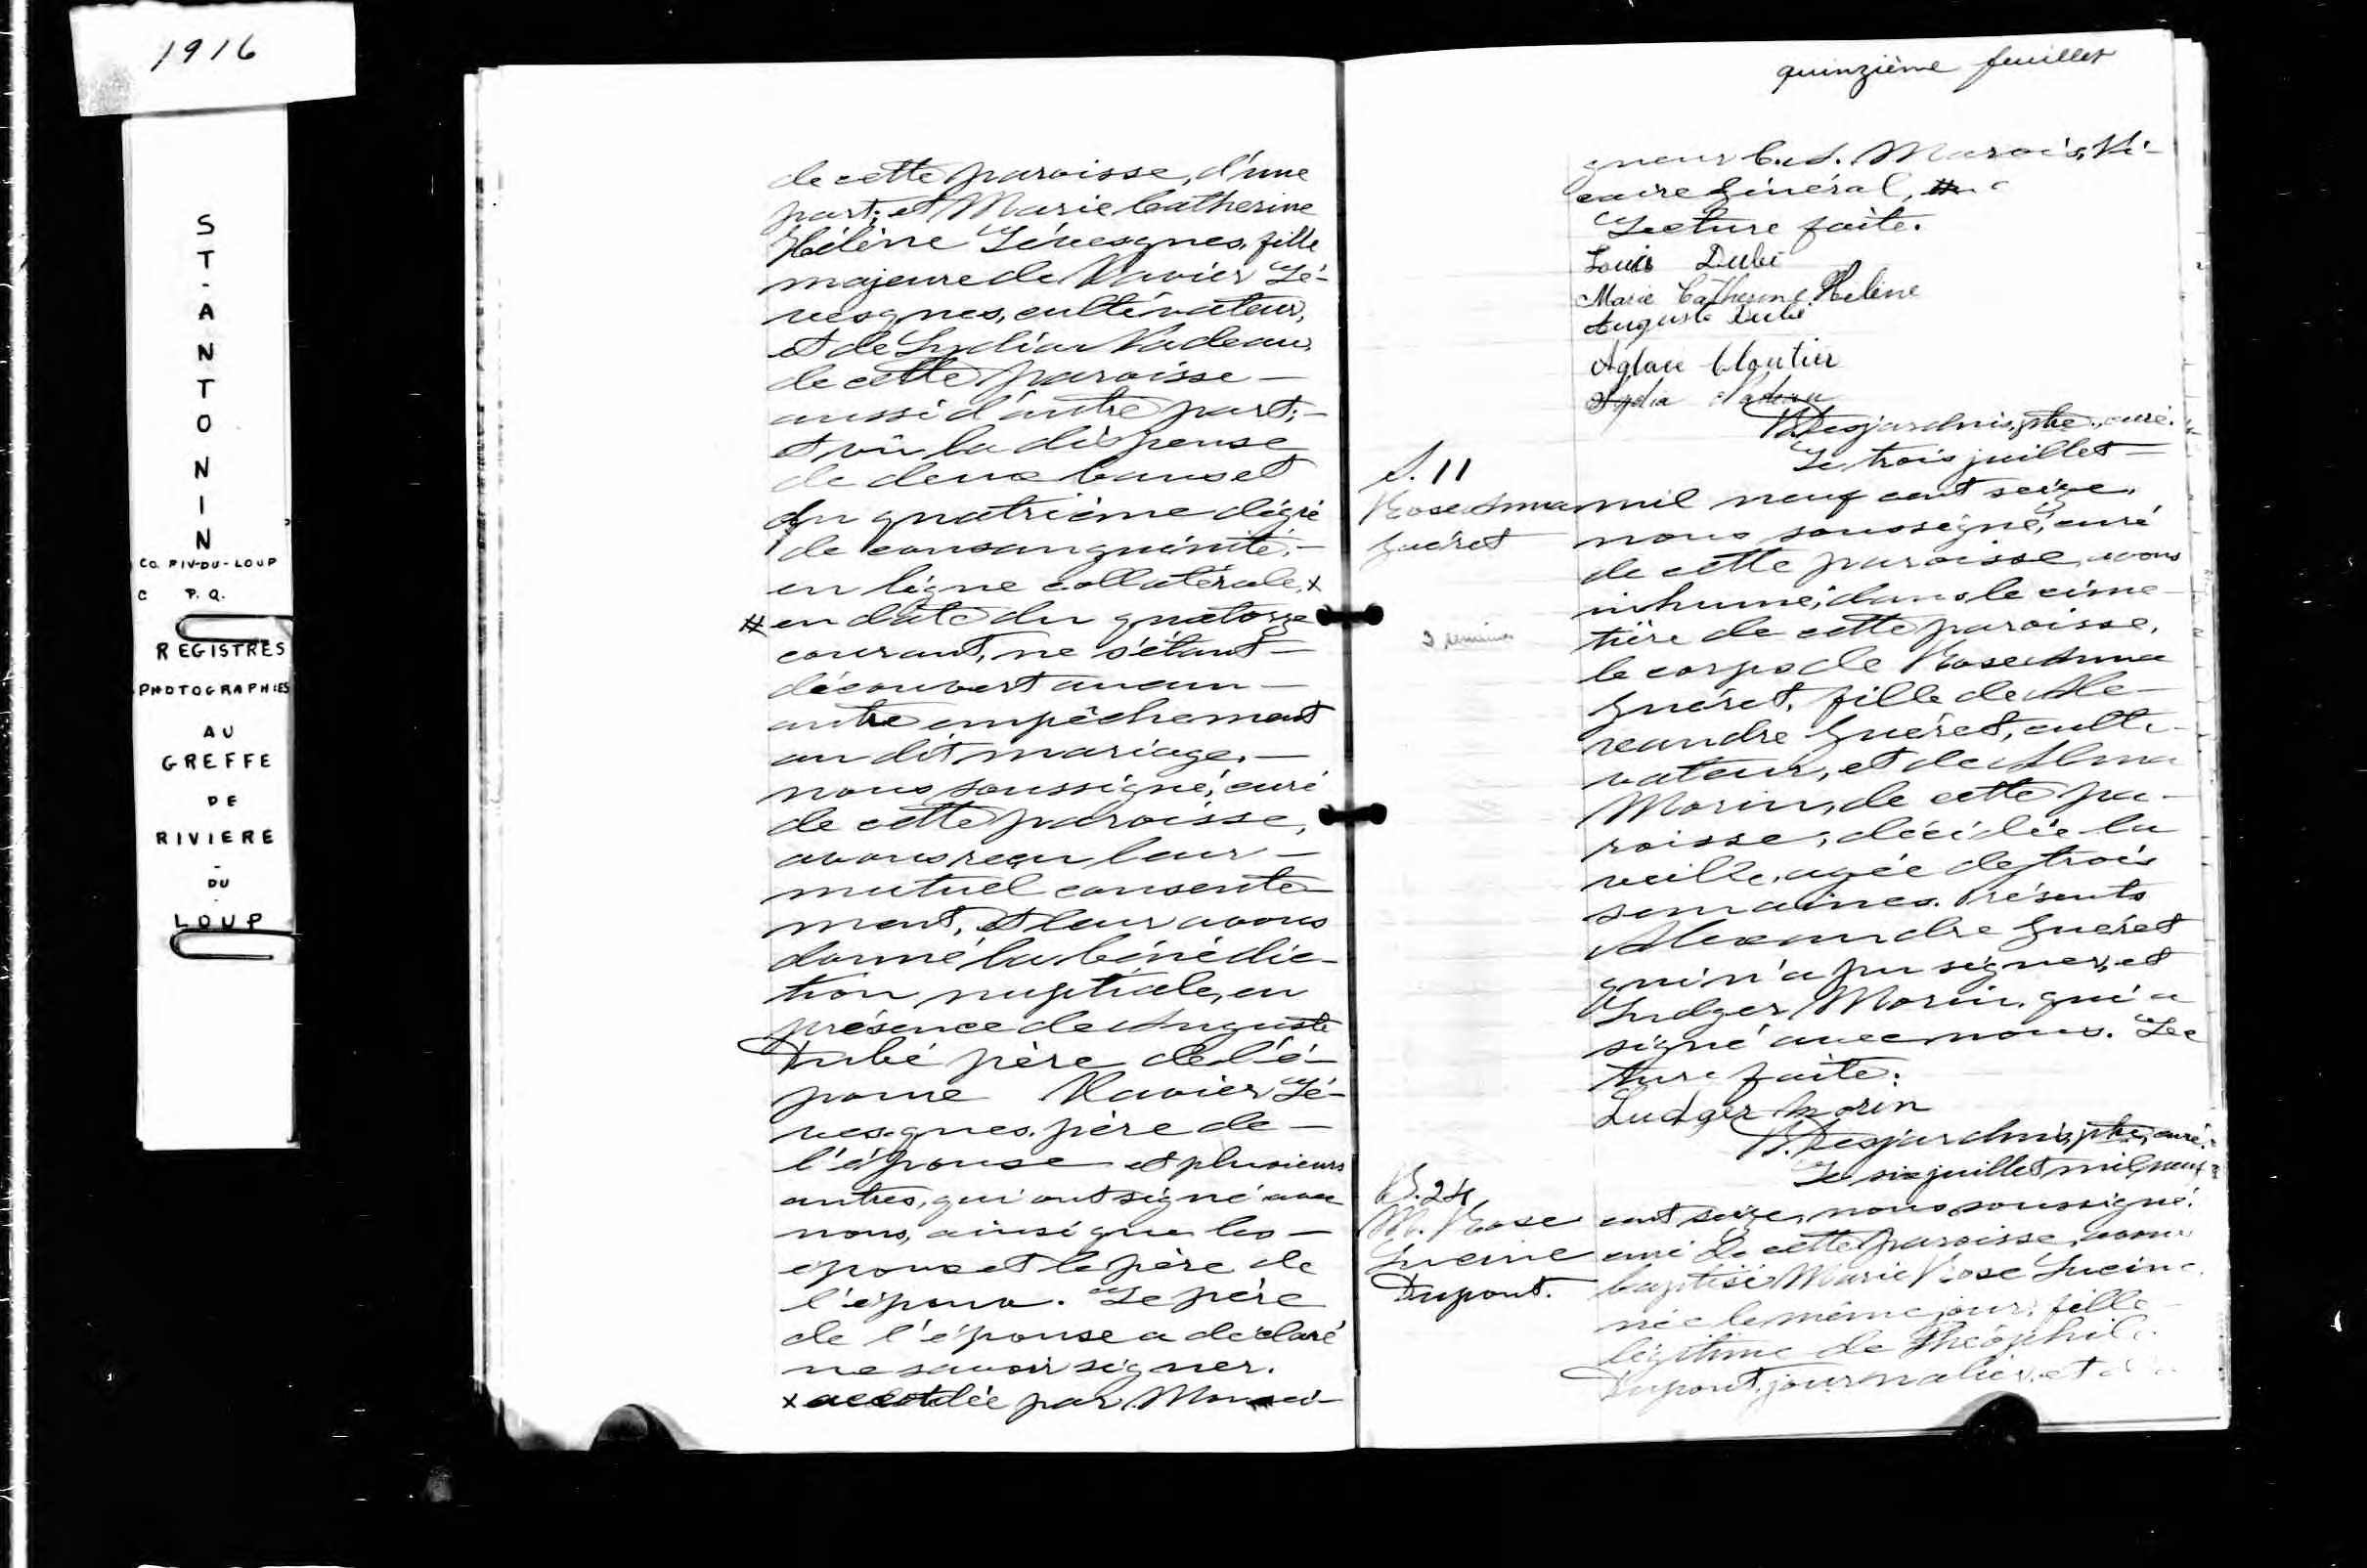 1916
ST-ANTONIN
CO. RIV-DU-LOUP
C P.Q.
REGISTRES
PHOTOGRAPHIES
AU
GREFFE
DE
RIVIERE
-
DU
-
LOUP
de cette paroisse, d'une
part; et Marie Catherine
Hélène Lévesques, fille
majeure de Xavier Lé-
vesques, cultivateur,
et de Lydia Nadeau,
de cette paroisse —
aussi d'autre part; —
et vu la dispense
de deux bans et
du quatrième dégré
de consanguinité, —
en ligne collatérale, x
# en date du quatorze
courant, ne s'étant —
découvert aucun —
autre empêchement
au dit mariage, —
nous soussigné, curé
de cette paroisse,
avons reçu leur —
mutuel consente-
ment, et leur avons
donné la bénédic-
tion nuptiale, en
présence de Auguste
Dubé père de l'é-
poux Xavier Lé-
vesques, père de —
l'épouse et plusieurs
autres, qui ont signé avec
nous, ainsi que les —
époux et le père de
l'époux. Le père
de l'épouse a déclaré
ne savoir signer.
x accordée par Monsei-
quinzième feuillet
gneur C. A. Marois, Vi-
caire Général, #
Lecture faite.
Louis Dubé
Marie Catherine Hélène
Auguste Dubé
Aglaé Cloutier
Lydia Nadeau
Desjardins, ptre, curé.
Le trois juillet —
S. 11
Rose Anna
Guéret
3 semaines
mil neuf cent seize,
nous soussigné, curé
de cette paroisse, avons
inhumé, dans le cime-
tière de cette paroisse,
le corps de Rose Anna
Guéret, fille de Ale-
xandre Guéret, culti-
vateur, et de Alma
Morin, de cette pa-
roisse, décédée la
veille, agée de trois
semaines. Présents
Alexandre Guéret
qui n'a pu signer, et
Ludger Morin, qui a
signé avec nous. Lec
ture faite.
Ludger Morin
Desjardins, ptre, curé.
Le six juillet mil neuf
B. 24
M. Rose
Lucine
Dupont.
cent seize, nous soussigné,
curé de cette paroisse, avons
baptisé Marie Rose Lucine
née le même jour, fille
légitime de Théophile
Dupont, journalier, et